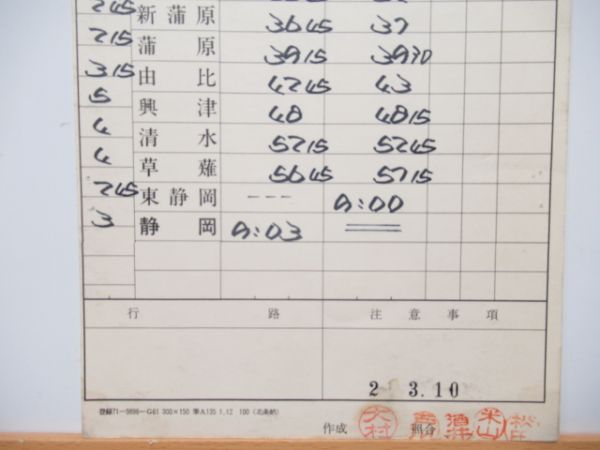 245 新蒲原 3645 37
215 蒲原 3915 3930
315 由比 4245 43
5 興津 48 4815
4 清水 5215 5245
4 草薙 5645 5715
245 東静岡 --- 9:00
3 静岡 9:03
行路 注意事項
2 3.10
登録71-5896-G61 300×150 準A135 1.12 100
作成 大村 照合 米山